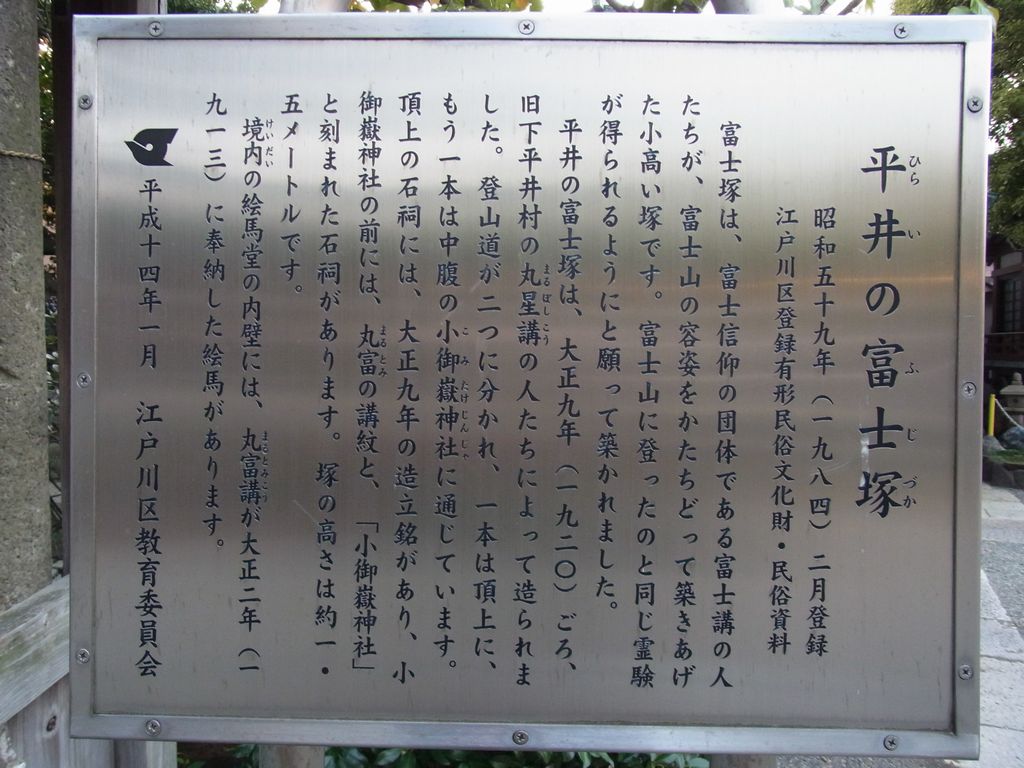 平井の富士塚
ひら い ふ じ づか
昭和五十九年（一九八四）二月登録
江戸川区登録有形民俗文化財・民俗資料
富士塚は、富士信仰の団体である富士講の人
たちが、富士山の容姿をかたちどって築きあげ
た小高い塚です。富士山に登ったのと同じ霊験
が得られるようにと願って築かれました。
平井の富士塚は、大正九年（一九二〇）ごろ、
旧下平井村の丸星講の人たちによって造られま
まるぼしこう
した。登山道が二つに分かれ、一本は頂上に、
もう一本は中腹の小御嶽神社に通じています。
こ み たけじんじゃ
頂上の石祠には、大正九年の造立銘があり、小
御嶽神社の前には、丸富の講紋と、「小御嶽神社」
まるとみ
と刻まれた石祠があります。塚の高さは約一・
五メートルです。
境内の絵馬堂の内壁には、丸富講が大正二年（一
けいだい まるとみこう
九一三）に奉納した絵馬があります。
平成十四年一月 江戸川区教育委員会